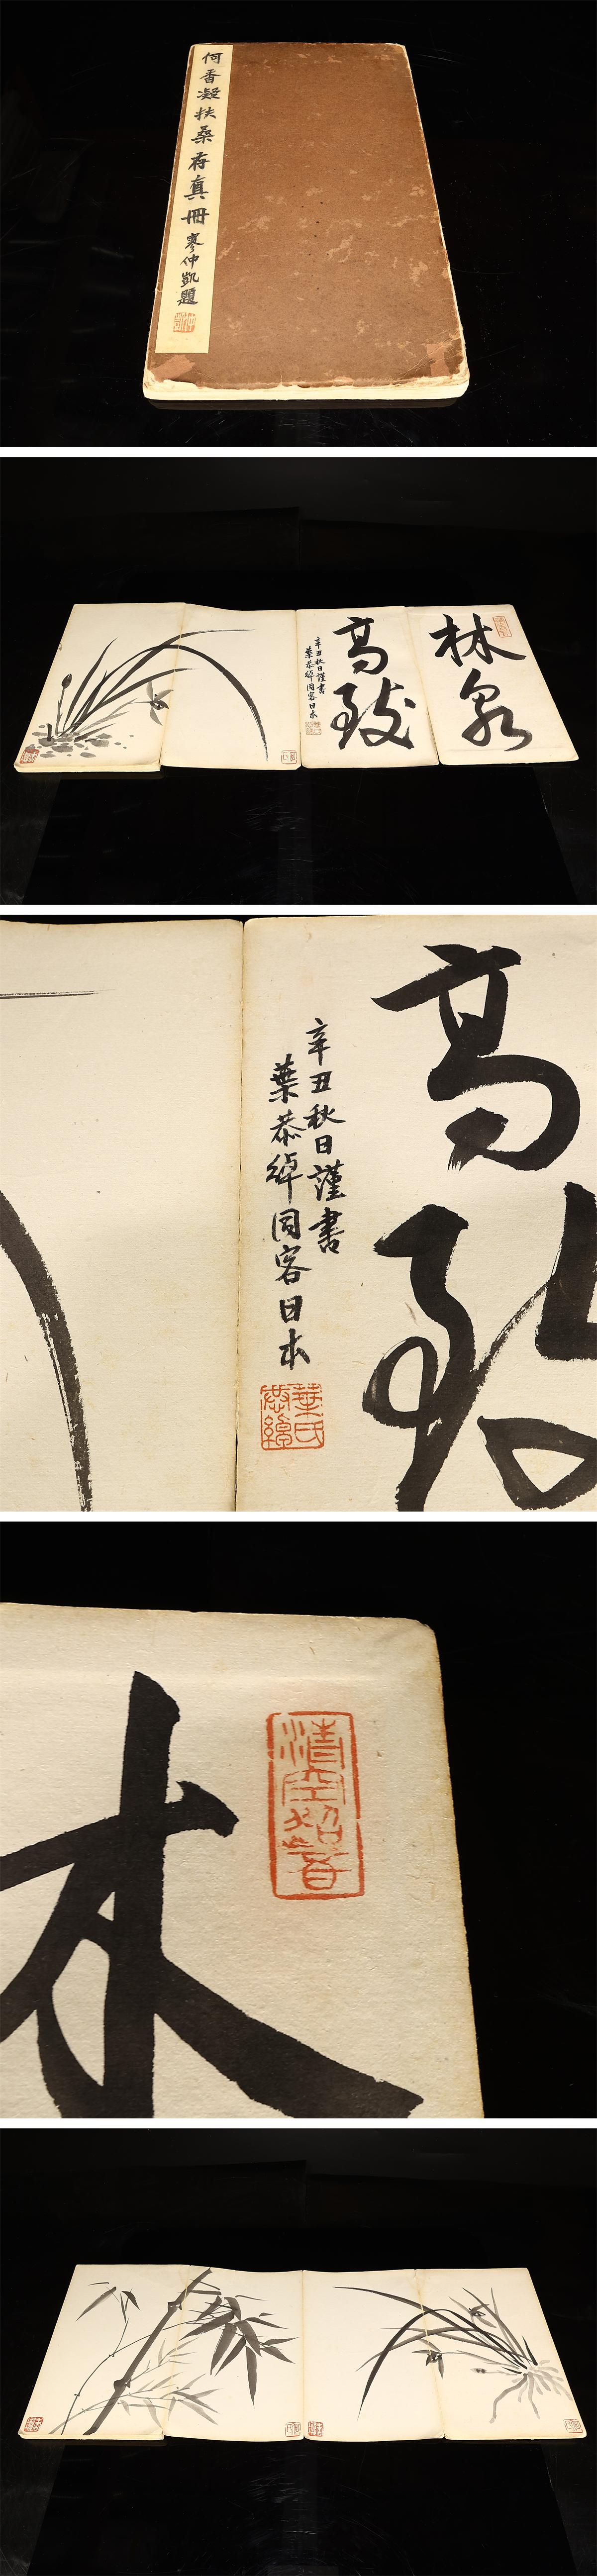 何香凝扶桑存真冊 廖仲凱題
林泉
高致
辛丑秋日謹書
葉恭綽同客日本
高致
辛丑秋日謹書
葉恭綽同客日本
葉氏恭綽